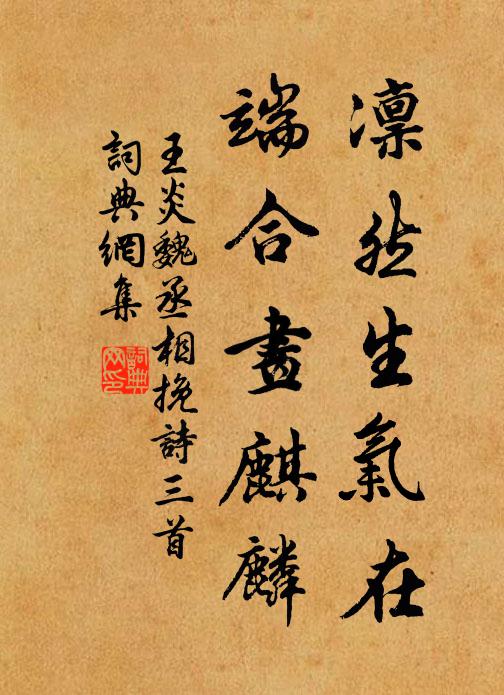 凜然生氣在
端合畫麒麟
王炎魏丞相挽詩三首
詞典網集
詞典
网印